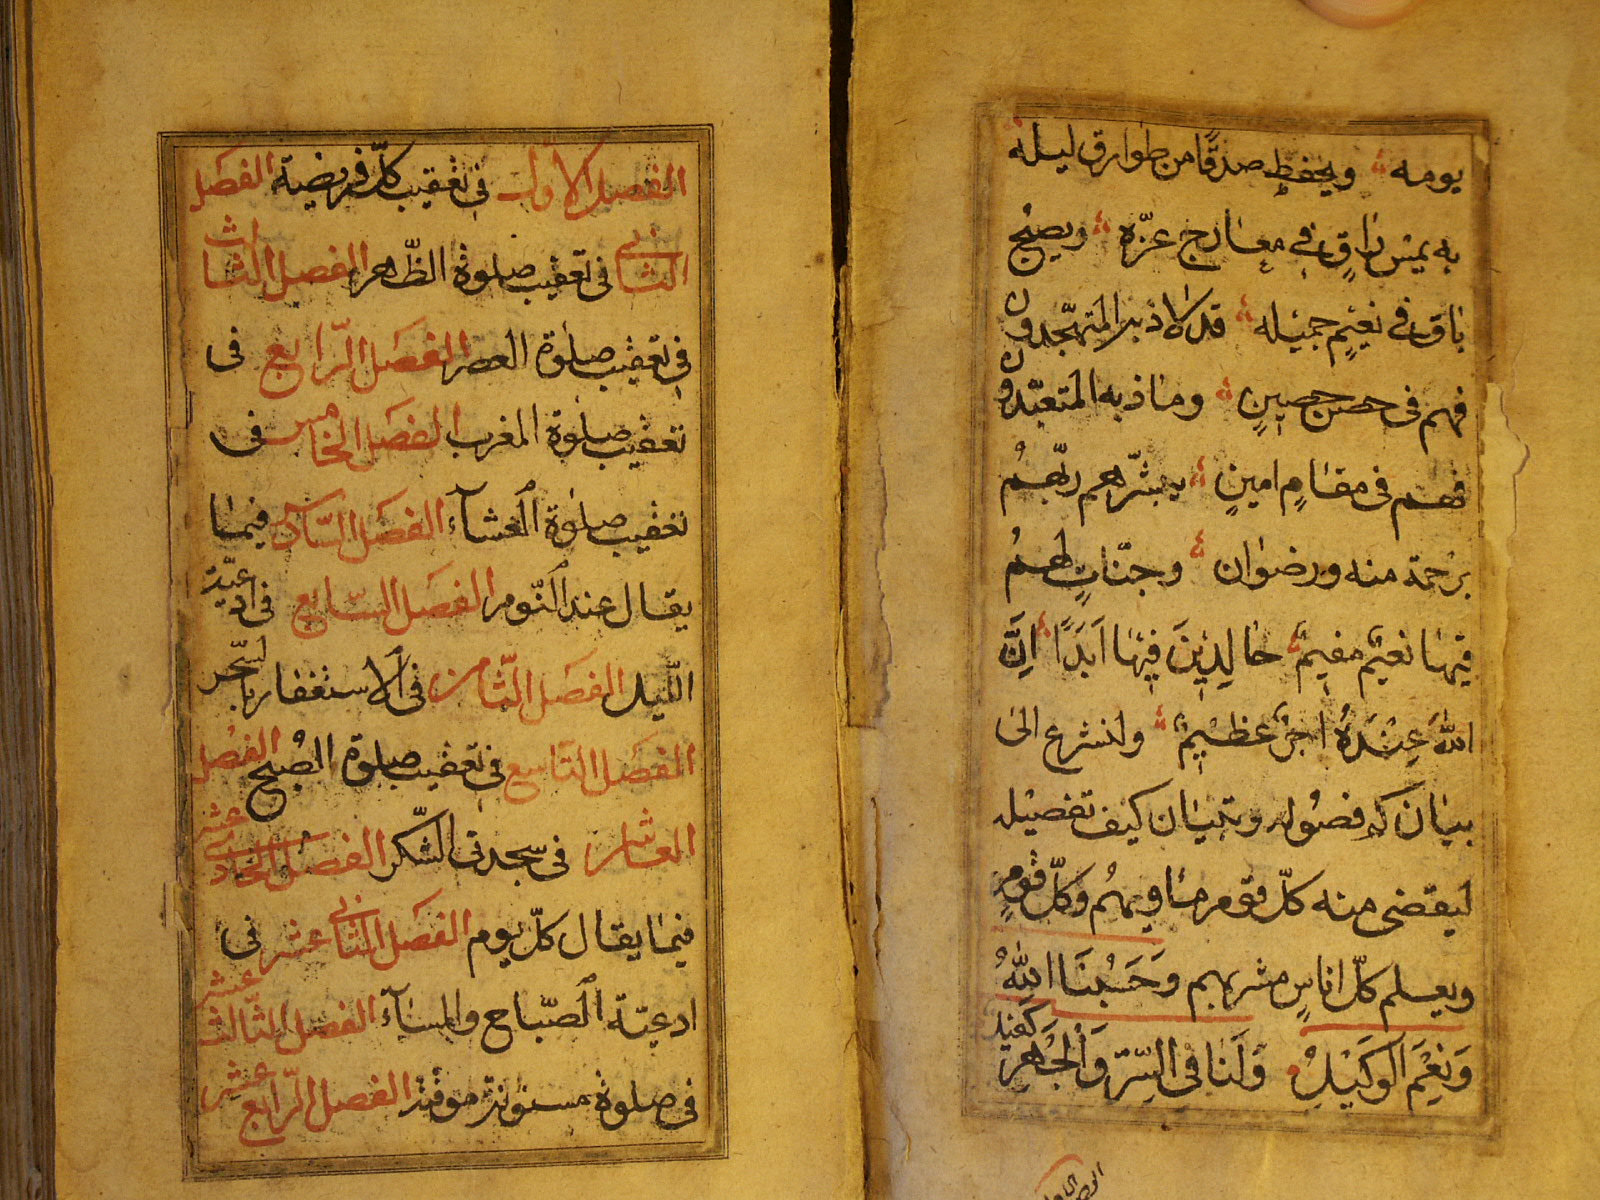 يومه ويحفظ صدقًا من طوارق ليله
به يمس راقٍ في معارج عزّه ويصبح
باق في نعيم جميله قد لاذ به المتهجّدون
فهم في حصن حصينٍ وماذ به المتعبّدون
فهم في مقامٍ امينٍ يبشّرهم ربّهمُ
برحمة منه ورضوان وجنّاتٍ لهمُ
فيها نعيمٌ مقيمٌ خالِدِينَ فِيهَا اَبَدًا اِنَّ
اللّٰهَ عِنْدَهُ اجرٌ عظيمٌ ولنشرع الى
بيان كم فصوله وتبيان كيف تفصيله
ليقضى منه كلّ قوم مأويهمُ وكلّ قومٍ
ويعلم كلّ اناسٍ مشربهم وَحَسْبُنَا اللّٰهُ
وَنِعْمَ الوَكيلُ وَلَنَا في السِّرّ وَالْجَهْرِ كفيل
الفصل الاول في تعقيب كلّ فريضة الفصل
الثاني في تعقيب صلوة الظّهر الفصل الثالث
في تعقيب صلوة العصر الفصل الرّابع في
تعقيب صلوة المغرب الفصل الخامس في
تعقيب صلوة العشآء الفصل السّادس فيما
يقال عند النّوم الفصل السّابع في ادعيّة
اللّيل الفصل الثّامن في الاستغفار بالسّحر
الفصل التّاسع في تعقيب صلوة الصّبح الفصل
العاشر في سجدتي الشّكر الفصل الحادي عشر
فيما يقال كلّ يوم الفصل الثّاني عشر في
ادعيّة الصّباح والمسآء الفصل الثّالث عشر
في صلوة مسنونة موقّتة الفصل الرّابع عشر